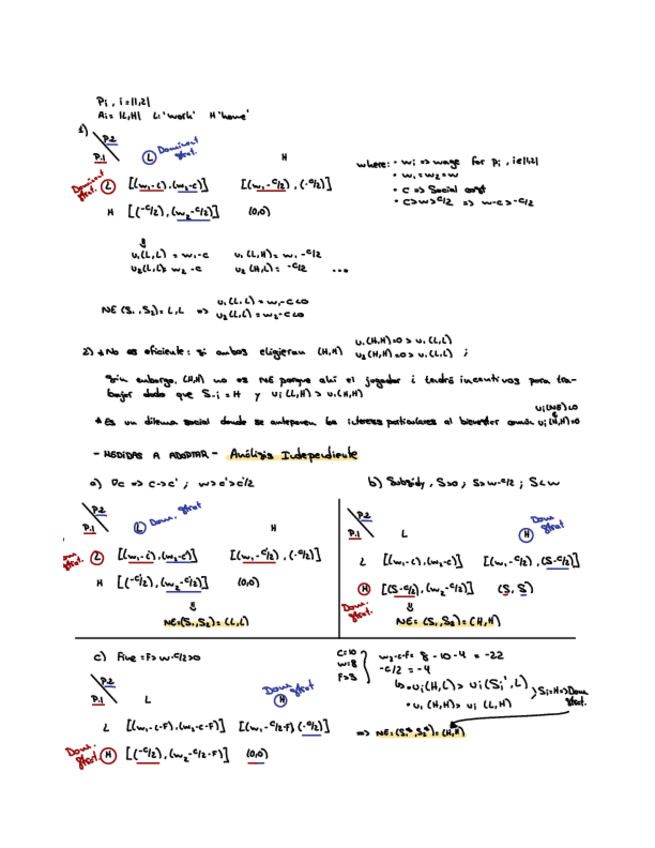 Pi , i=|1,2|
Ai= |L,H|   L: 'work'   H 'home'
1)
P.2
P.1   L   Dominant strat.   H
Dominant strat.   L   [(w₁-c),(w₂-c)]   [(w₁-c/2),(-c/2)]
H   [(-c/2),(w₂-c/2)]   (0,0)
where: · wi => wage for Pi , i∈|1,2|
· w₁=w₂=w
· c => Social cost
· c>w>c/2 => w-c>-c/2
⇓
u₁(L,L) = w₁-c   u₁(L,H)= w₁-c/2
u₂(L,L)= w₂-c   u₂(H,L)= -c/2   ...
NE (S₁,S₂)= L,L =>   u₁(L,L)=w₁-c<0
u₂(L,L)=w₂-c<0
2) * No es eficiente: si ambos eligieran (H,H)   u₁(H,H)=0 > u₁(L,L)
u₂(H,H)=0 > u₂(L,L) ;
Sin embargo, (H,H) no es NE porque ahí el jugador i tendrá incentivos para tra-
bajar dado que S-i = H y ui(L,H) > ui(H,H)
* Es un dilema social donde se anteponen los intereses particulares al bienestar común   ui(NE)<0
ui(H,H)=0
- MEDIDAS A ADOPTAR - Análisis Independiente
a) Dc => c->c' ; w>c'>c'/2
P.2
P.1   L   Dom. strat   H
Dom. strat.   L   [(w₁-c'),(w₂-c')]   [(w₁-c'/2),(-c'/2)]
H   [(-c'/2),(w₂-c'/2)]   (0,0)
⇓
NE=(S₁,S₂)= (L,L)
b) Subsidy , S>0 ; S>w-c/2 ; S<w
P.2
P.1   L   H   Dom strat
L   [(w₁-c),(w₂-c)]   [(w₁-c/2),(S-c/2)]
Dom. strat.   H   [(S-c/2),(w₂-c/2)]   (S,S)
⇓
NE= (S₁,S₂)= (H,H)
c) Fine =F> w-c/2>0
P.2
P.1   L   H   Dom strat
L   [(w₁-c-F),(w₂-c-F)]   [(w₁-c/2-F),(-c/2)]
Dom. strat.   H   [(-c/2),(w₂-c/2-F)]   (0,0)
C=10
w=8
F>3
w₂-c-F= 8-10-4 = -22
-c/2 = -4
↳ · ui(H,L)> ui(Si',L)
· ui(H,H)> ui (L,H)
Si=H=>Dom strat.
=> NE=(S₁*,S₂*)= (H,H)